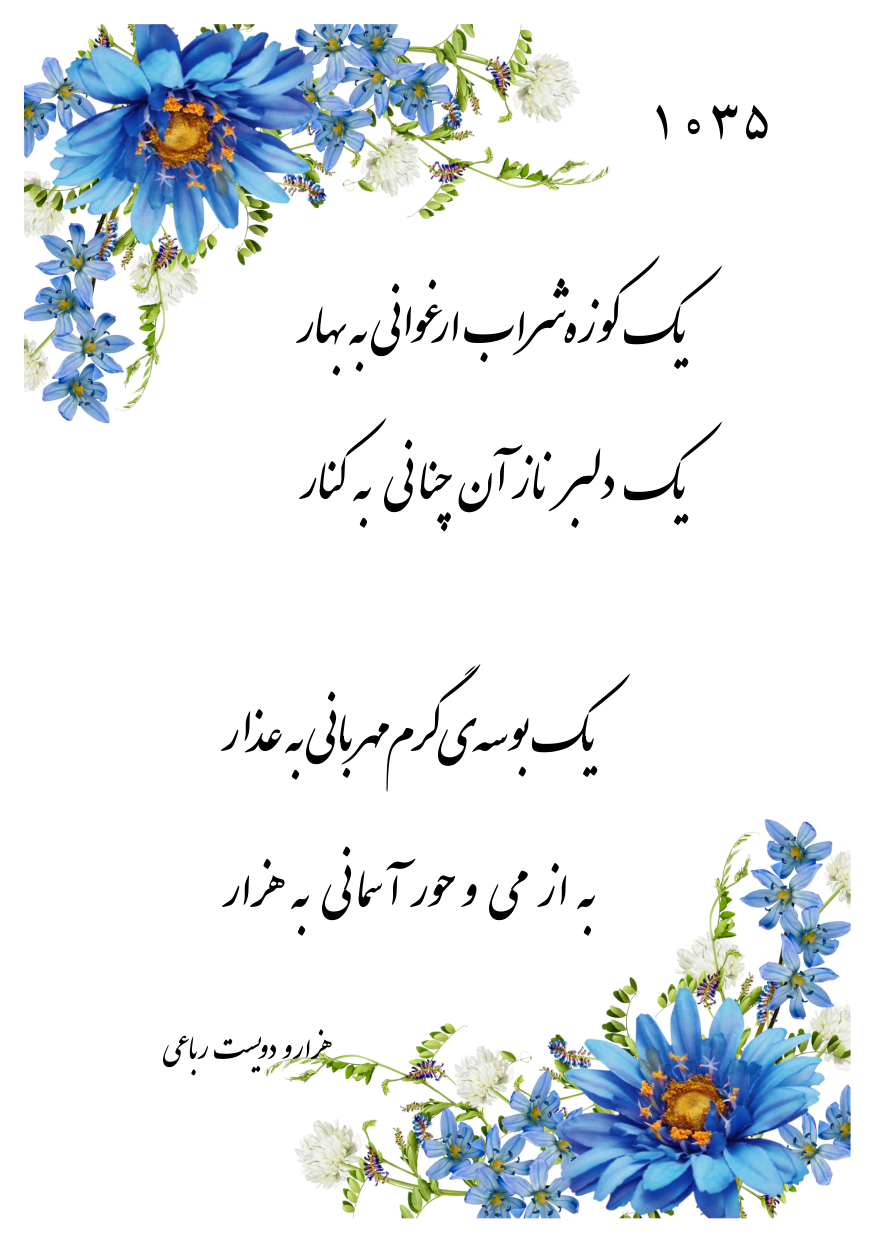 ۱۰۳۵
یک کوزه شراب ارغوانی به بهار
یک دلبر ناز آن چنانی به کنار
یک بوسه‌ی گرم مهربانی به عذار
به از می و حور آسمانی به هزار
هزار و دویست رباعی